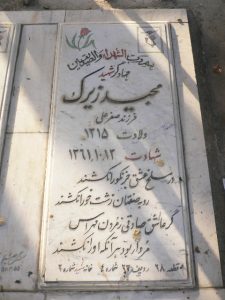 بسم رب الشهداء والصدیقین
جهادگر شهید
مجید زیرک
فرزند صفرعلی
ولادت ۱۳۱۵
شهادت ۱۳۶۱,۱۰,۱۳
در مسلخ عشق جز نکو را نکشند
روبه صفتان زشت خو را نکشند
گر عاشق صادقی ز مردن مهراس
مردار بود هر آنکه او را نکشند
قطعه ۲۸ ردیف ۶۷ شماره ۴